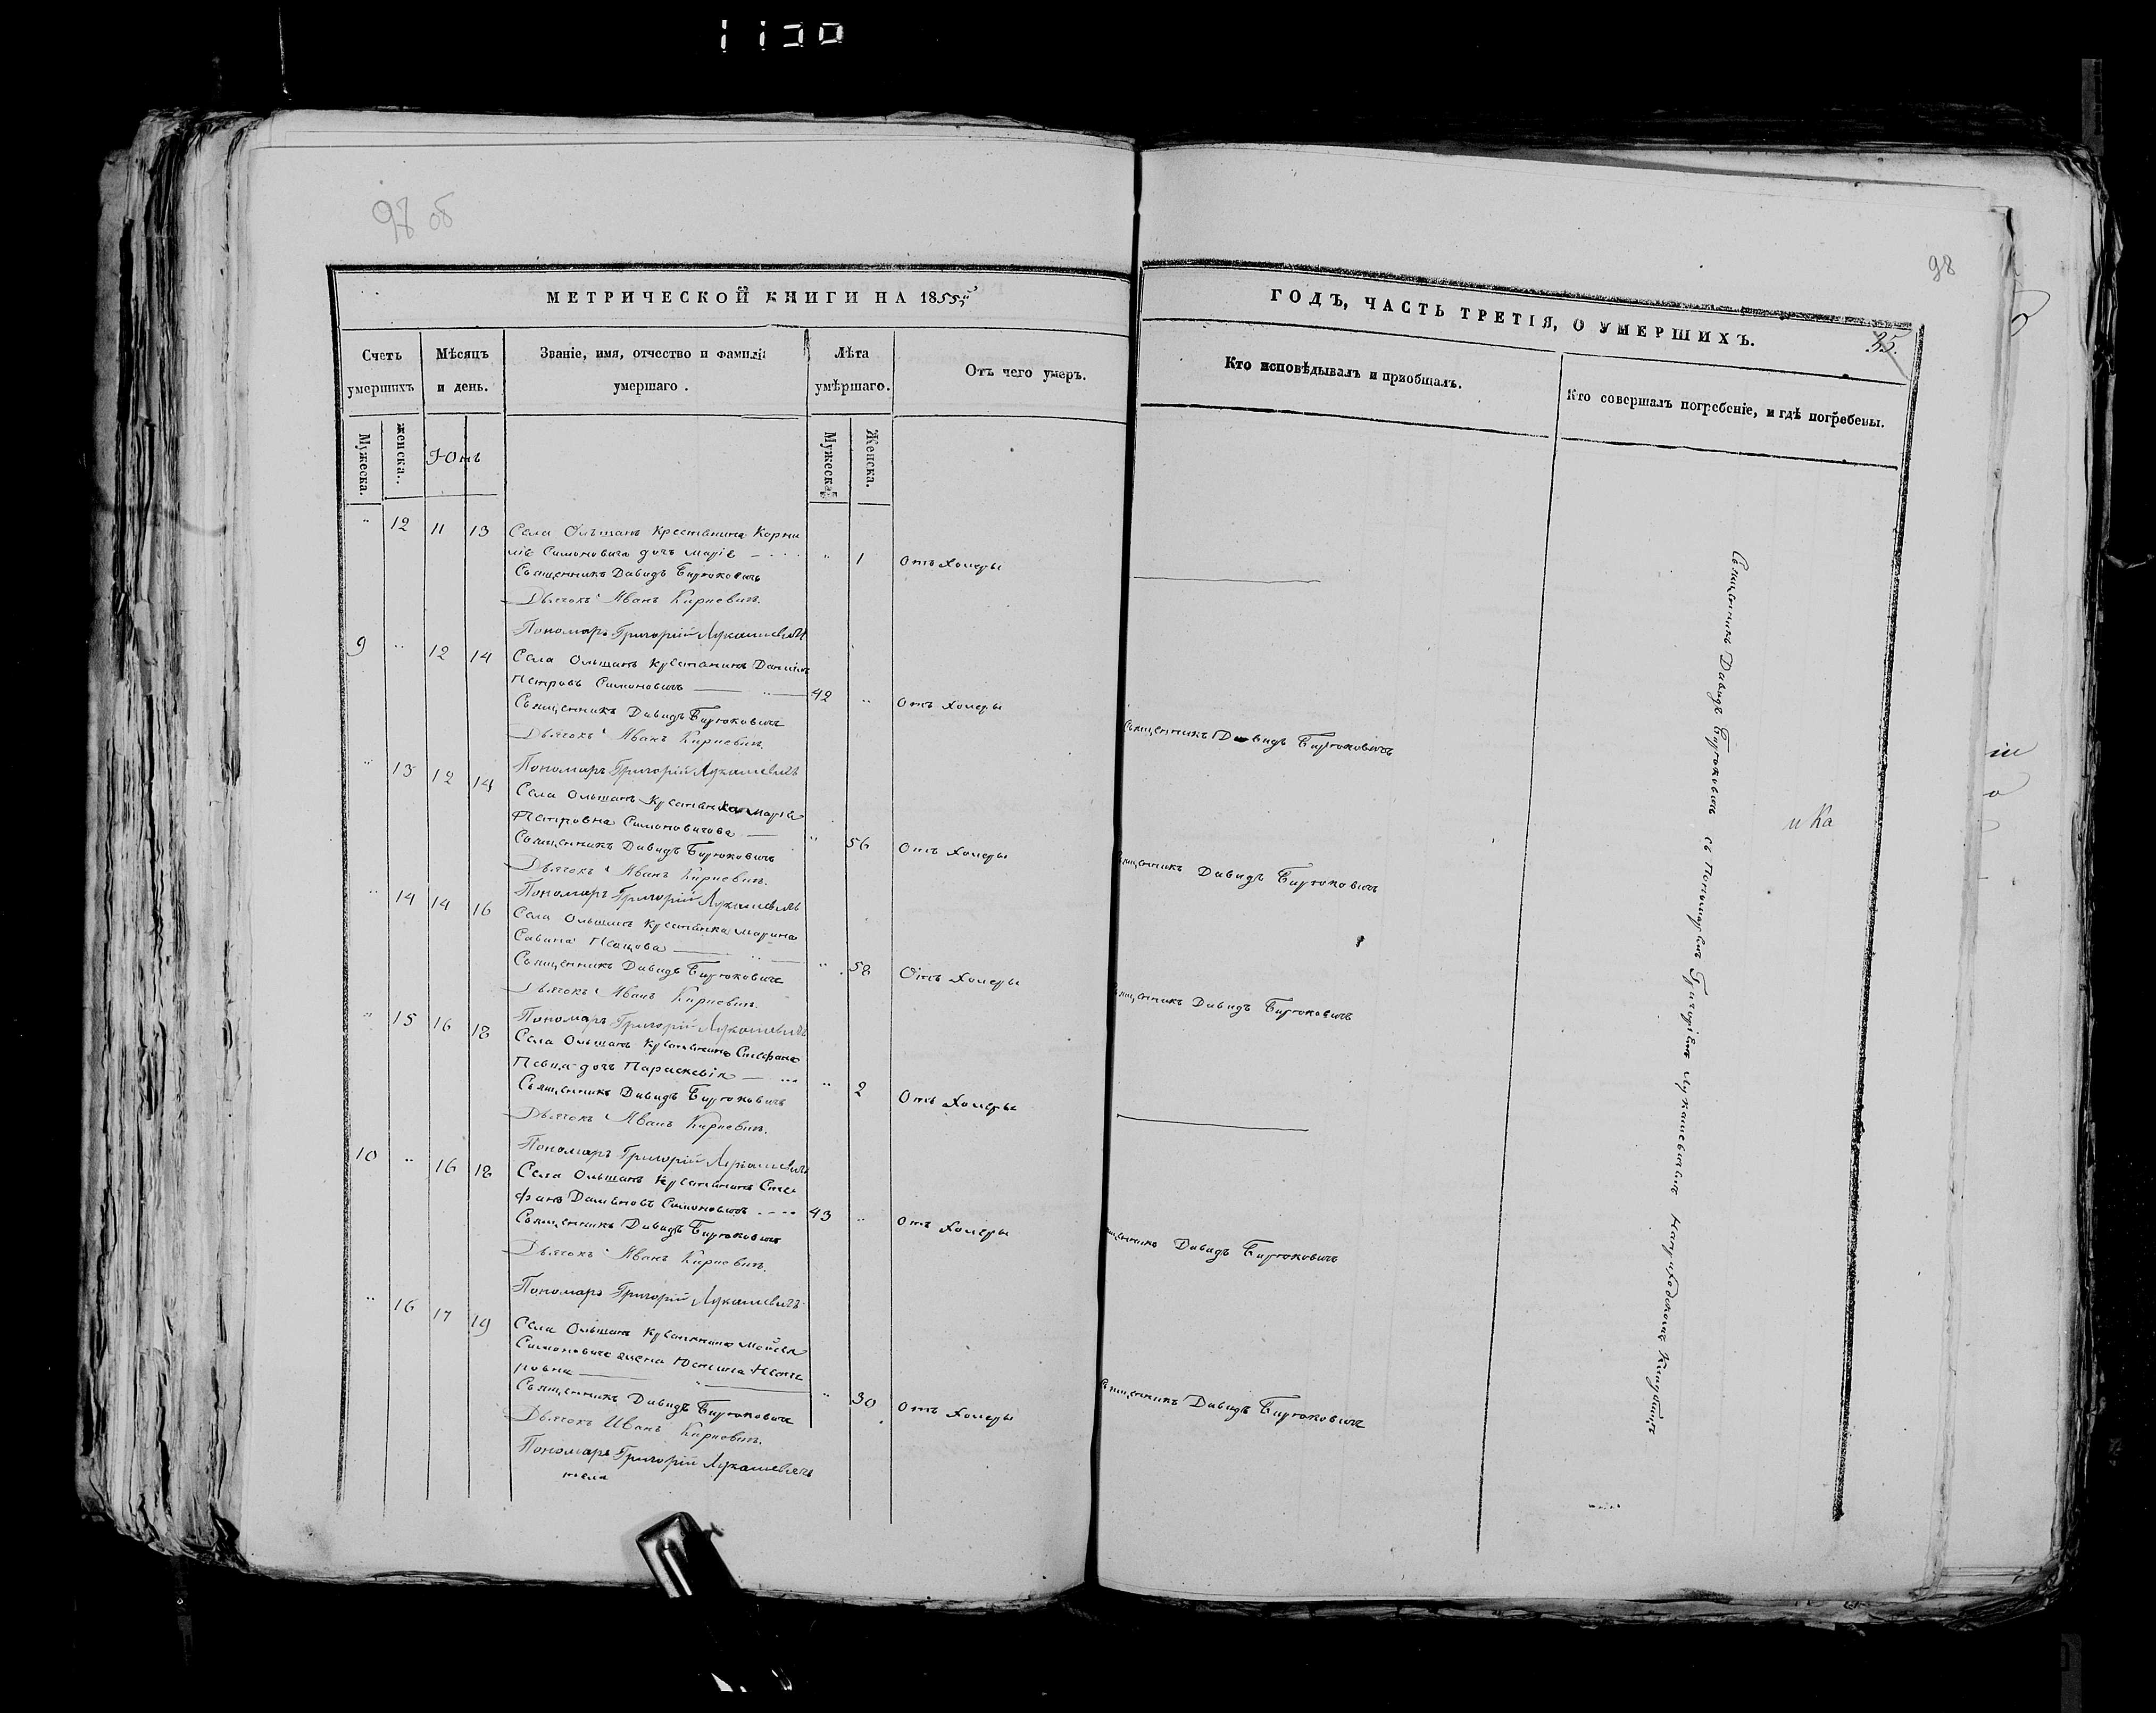 97 об
98
МЕТРИЧЕСКОЙ КНИГИ НА 1855й
ГОДЪ, ЧАСТЬ ТРЕТІЯ, О УМЕРШИХЪ.
35.
Счетъ умершихъ
Мѣсяцъ и день.
Званіе, имя, отчество и фамилія умершаго.
Лѣта умѣршаго.
Отъ чего умеръ.
Кто исповѣдывалъ и пріобщалъ.
Кто совершалъ погребеніе, и гдѣ погребены.
Мужеска.
женска.
Юнь
Мужеска
Женска.
" 12 11 13 Села Ольшанъ Крестьянина Корни
лія Симоновича дочь марія " 1 Отъ Холеры
Священникъ Давидъ Бирюковичь
Дьячокъ Иванъ Кирневичъ.
Пономарь Григорій Лукашевичъ
9 " 12 14 Села Ольшанъ крестянинъ Даніилъ
Петровъ Симоновичъ 42 " Отъ Холеры
Священникъ Давидъ Бирюковичъ
Священникъ Давидъ Бирюковичъ
Дьячокъ Иванъ Кирневичъ.
Пономарь Григорій Лукашевичъ
" 13 12 14 Села Ольшанъ Крестянка марія
Петровна Симоновичова " 56 Отъ Холеры
Священникъ Давидъ Бирюковичъ
Священникъ Давидъ Бирюковичъ
Дьячокъ Иванъ Кирневичъ.
Пономарь Григорій Лукашевичъ
" 14 14 16 Села Ольшанъ Крестянка марина
Савина " 58 Отъ Холеры
Священникъ Давидъ Бирюковичъ
Священникъ Давидъ Бирюковичъ
Дьячокъ Иванъ Кирневичъ.
Пономарь Григорій Лукашевичъ
" 15 16 18 Села Ольшанъ Крестянина Стефана
дочь Параскевія " 2 Отъ Холеры
Священникъ Давидъ Бирюковичъ
Дьячокъ Иванъ Кирневичъ.
Пономарь Григорій Лукашевичъ
10 " 16 18 Села Ольшанъ Крестянинъ Сте
фанъ Симоновичъ 43 " Отъ Холеры
Священникъ Давидъ Бирюковичъ
Священникъ Давидъ Бирюковичъ
Дьячокъ Иванъ Кирневичъ.
Пономарь Григорій Лукашевичъ
" 16 17 19 Села Ольшанъ Крестянина
Симоновича жена Юстина Пет
ровна " 30 Отъ Холеры
Священникъ Давидъ Бирюковичъ
Священникъ Давидъ Бирюковичъ
Дьячокъ Иванъ Кирневичъ.
Пономарь Григорій Лукашевичъ
Священникъ Давидъ Бирюковичъ съ Пономаремъ Григоріемъ Лукашевичемъ на приходскомъ Кладбищѣ
и Ка